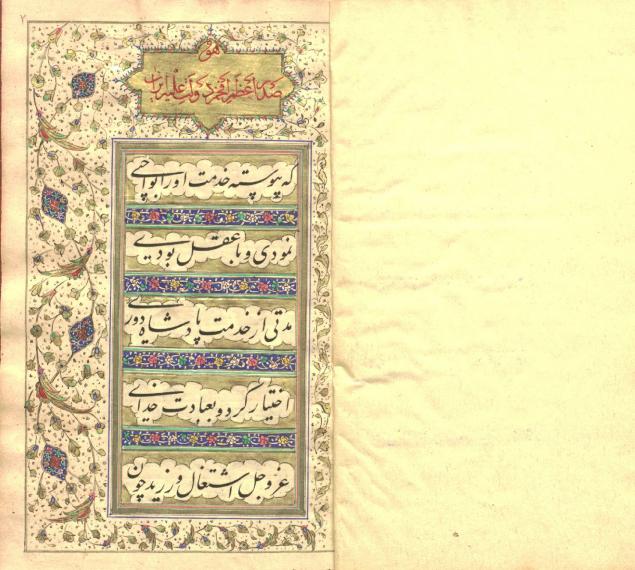 هو
صدر اعظم افخم دولت علیه ایران
که پیوسته خدمت او را بواجبی
نمودی و با عقل بودی
مدتی از خدمت پادشاه دوری
اختیار کرد و بعبادت خدای
عز و جل اشتغال ورزید چون